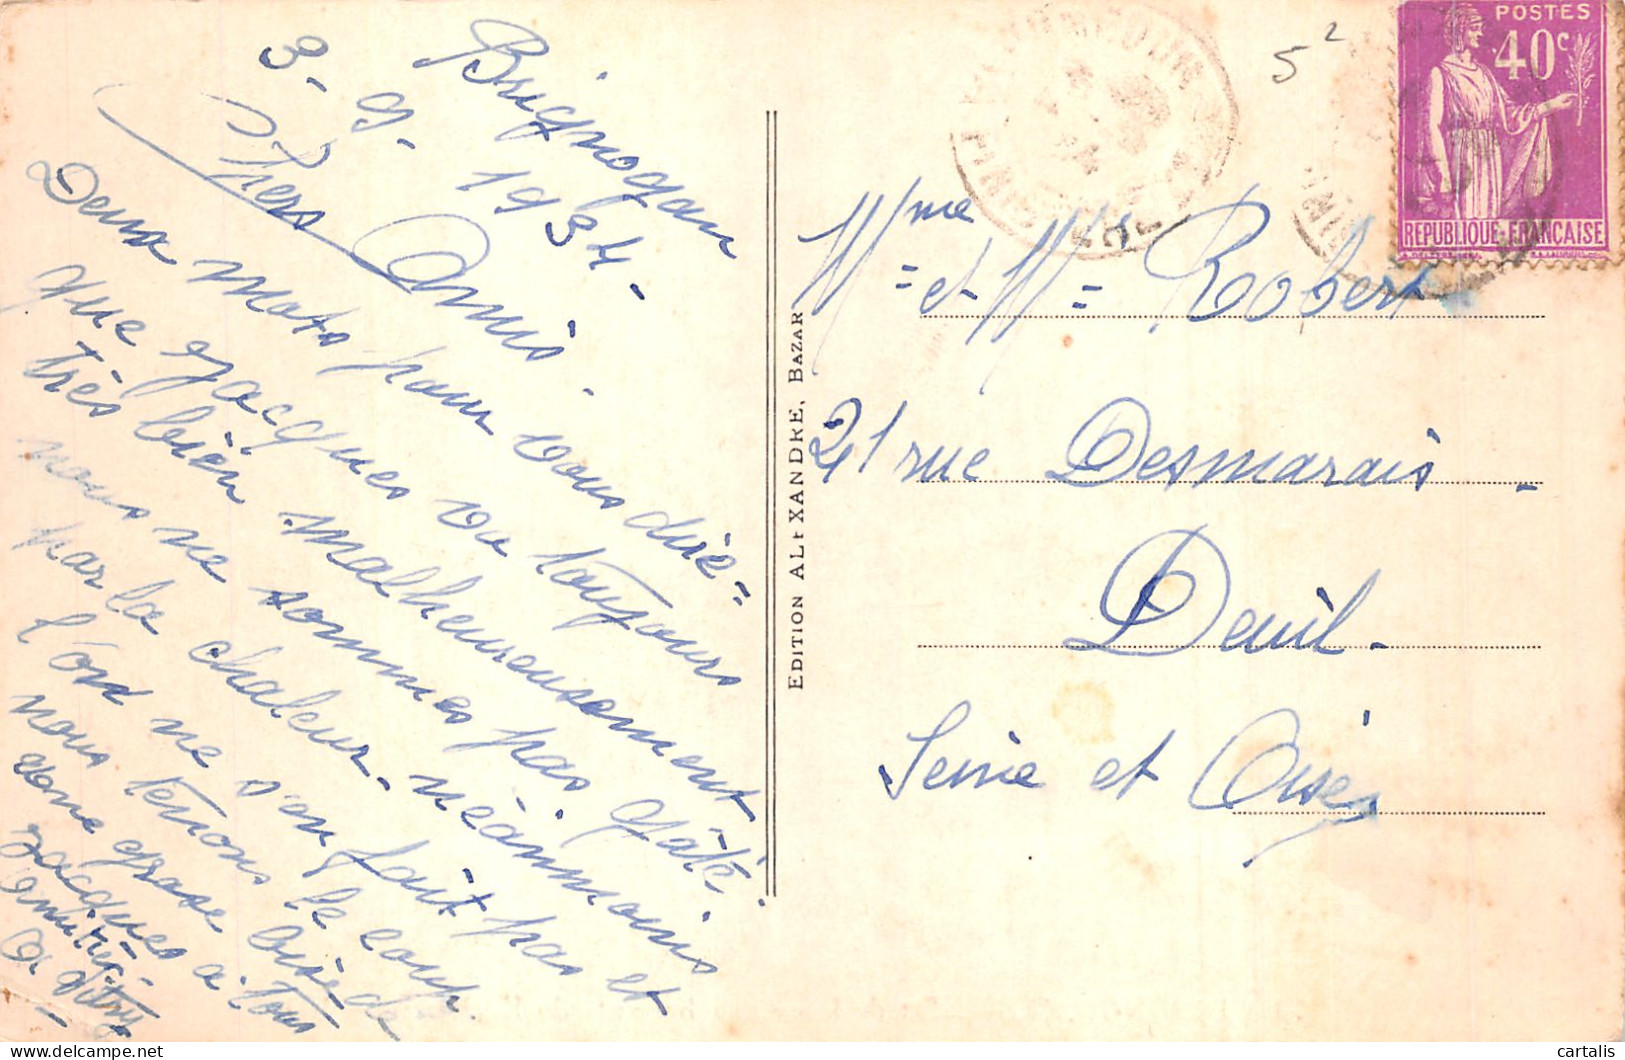 Brignogan
3-9-1934-
Chers Amis.
Deux mots pour vous dire-
que Jacques va toujours
très bien malheureusement
nous ne sommes pas gâté.
par la chaleur. néanmoins
l'on ne s'en fait pas et
nous tenons le coup.
une grosse bise de
Jacques a tous
amitié.
EDITION ALEXANDRE, BAZAR
5²
POSTES
40c
REPUBLIQUE-FRANÇAISE
Mme et Mr Robert
21 rue Desmarais -
Deuil.
Seine et Oise
cartalis
delcampe.net